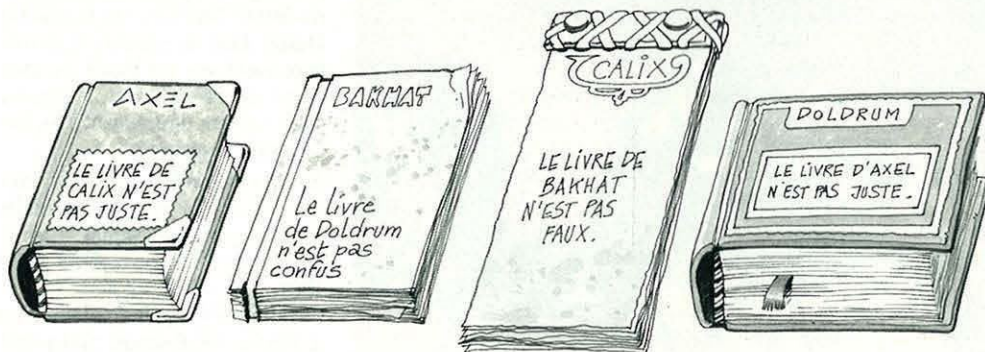 AXEL
LE LIVRE DE
CALIX N'EST
PAS JUSTE.
BAKHAT
Le Livre
de Doldrum
n'est pas
confus
CALIX
LE LIVRE DE
BAKHAT
N'EST PAS
FAUX.
DOLDRUM
LE LIVRE D'AXEL
N'EST PAS JUSTE.